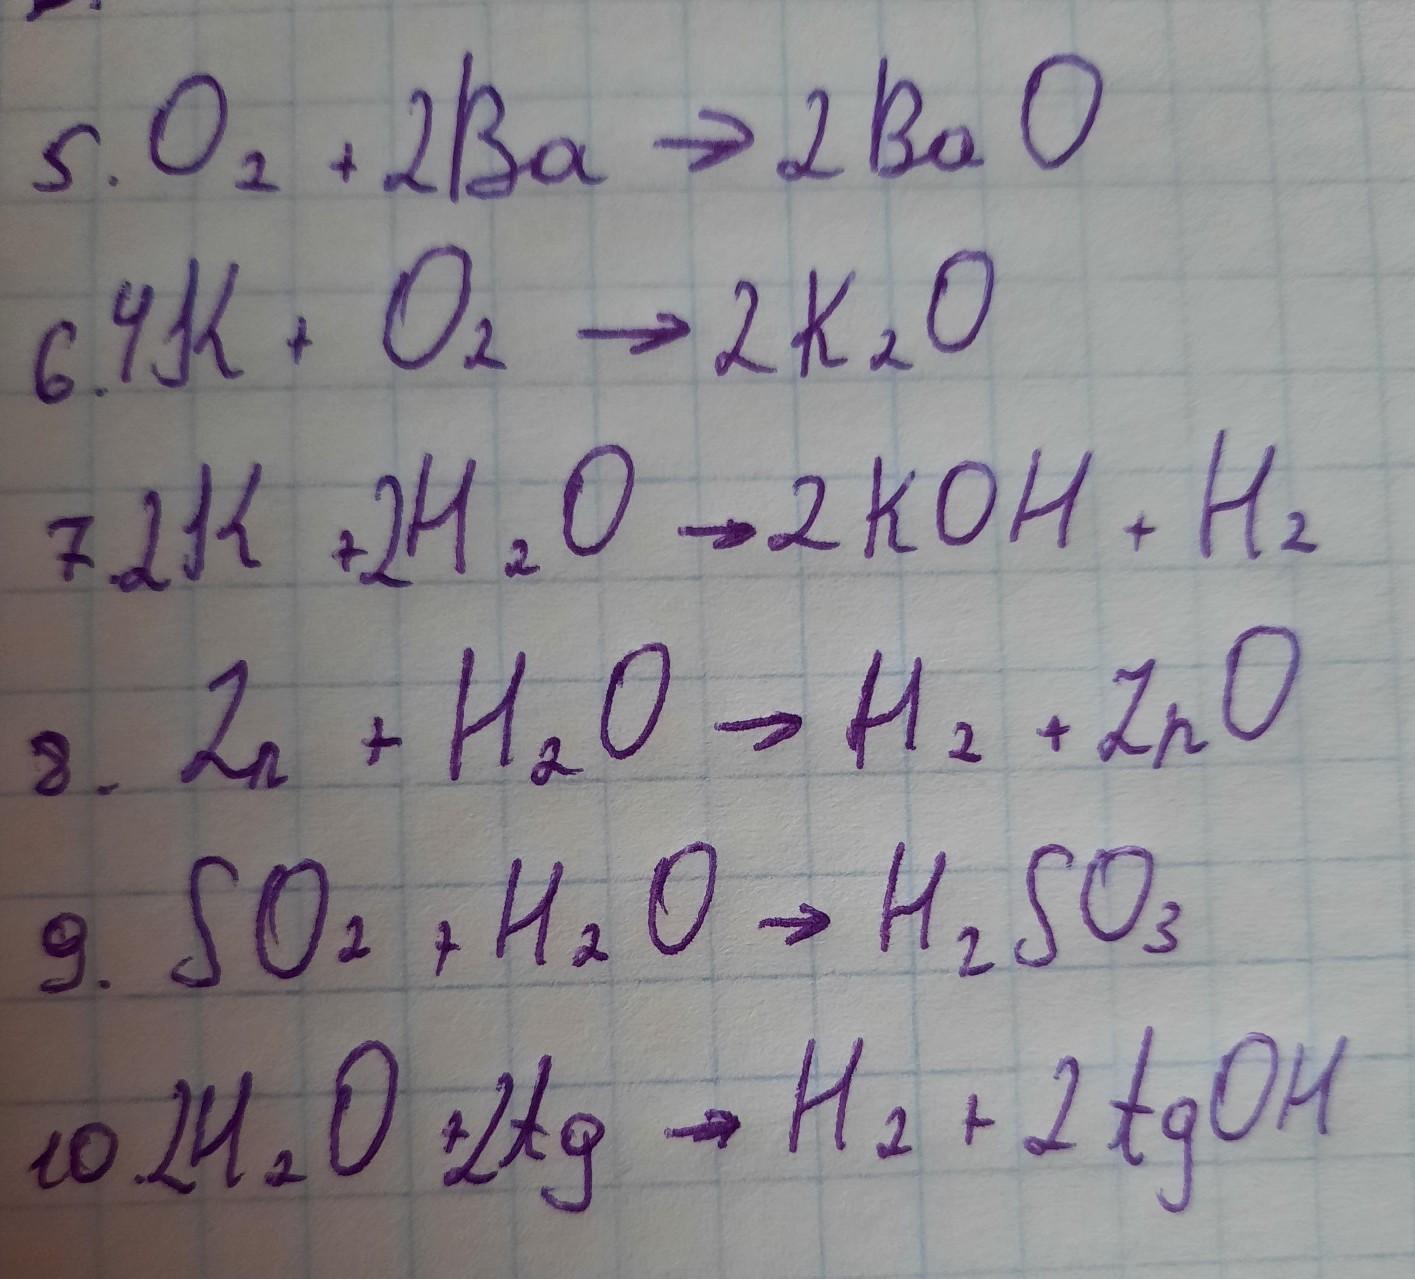 5. O₂ + 2Ba → 2BaO
6. 4K + O₂ → 2K₂O
7. 2K + 2H₂O → 2KOH + H₂
8. Zn + H₂O → H₂ + ZnO
9. SO₂ + H₂O → H₂SO₃
10. 2H₂O + 2tg → H₂ + 2tgOH